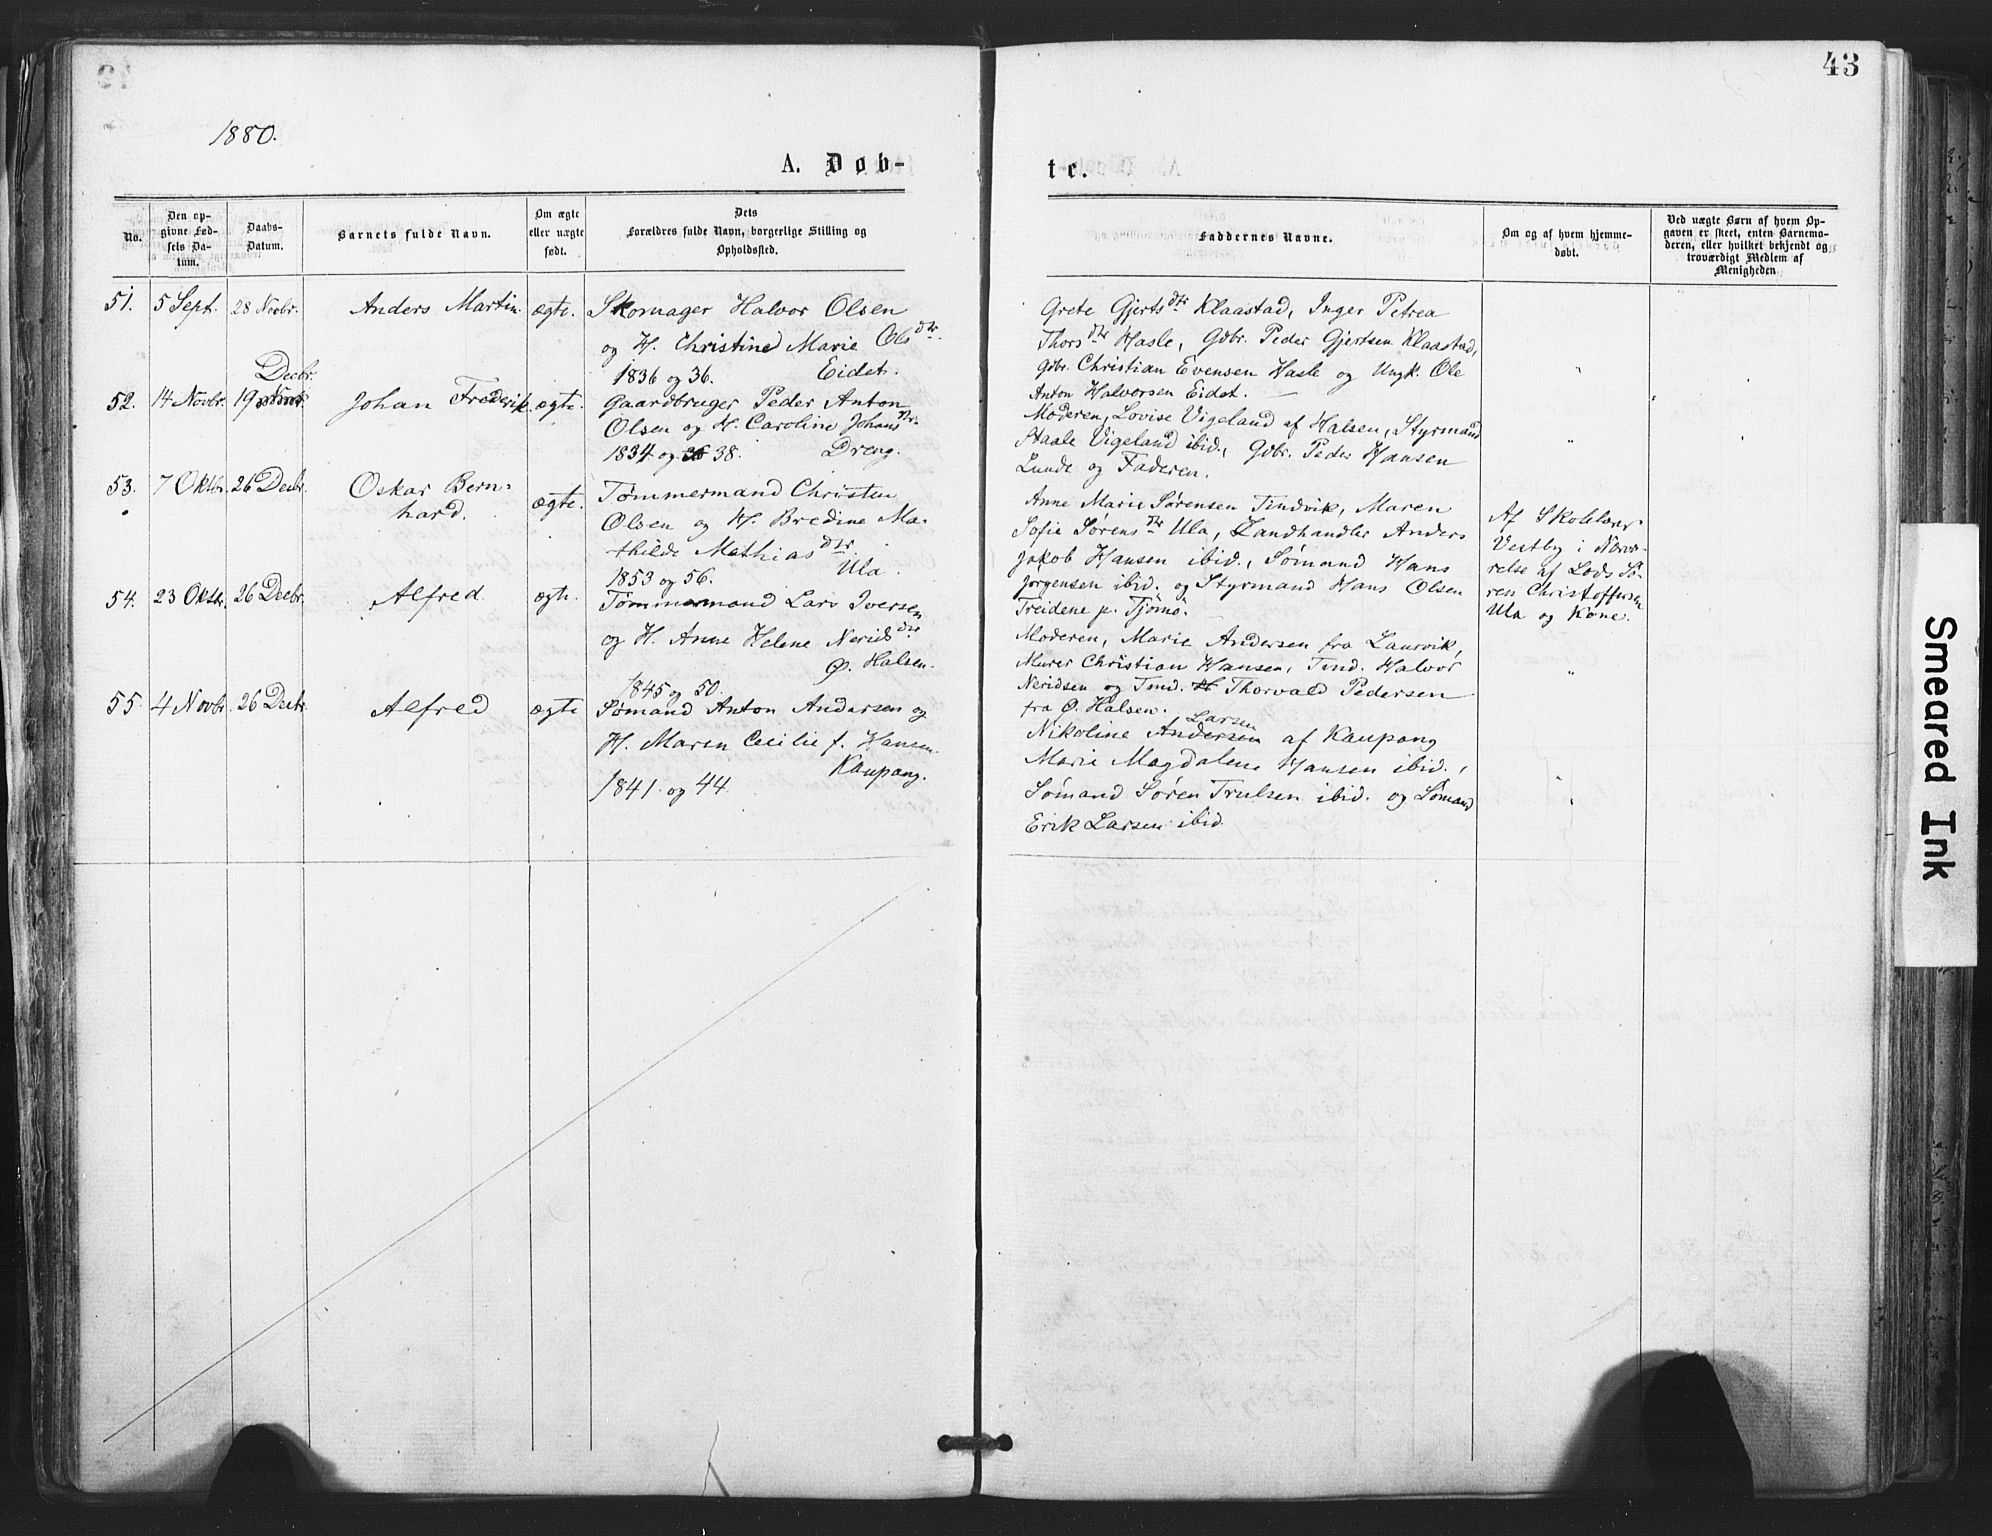 43
1880.
A. Døb-
te.
No.
Den op-
givne Fød-
sels Da-
tum.
Daabs-
Datum.
Barnets fulde Navn.
Om ægte
eller uægte
født.
Dets
Forældres fulde Navn, borgerlige Stilling og
Opholdssted.
Faddernes Navne.
Om og af hvem hjemme-
døbt.
Ved uægte Børn af hvem Op-
gaven er skeet, enten Barnemo-
deren, eller hvilket bekjendt og
troværdigt Medlem af
Menigheden
51. 5 Sept. 28 Novbr. Anders Martin. ægte. Skomager Halvor Olsen
og H. Christine Marie Olsdtr.
1836 og 36. Eidet.
Grete Gjertsdtr Klaastad, Inger Petrea
Thorsdtr Hasle, Gdbr. Peder Gjertsen Klaastad,
Gdbr. Christian Evensen Hasle og Ungk. Ole
Anton Halvorsen Eidet.
"
52. 14 Novbr. 19 Decbr. Johan Frederik. ægte. Gaardbruger Peder Anton
Olsen og H. Caroline Johansdtr.
1834 og 38. Dreng.
Moderen, Lovise Vigeland af Halsen, Styrmand
Staale Vigeland ibid., Gdbr. Peder Hansen
Lunde og Faderen.
"
53. 7 Oktbr. 26 Decbr. Oskar Bern-
hard. ægte. Tømmermand Christen
Olsen og H. Bredine Ma-
thilde Mathiasdtr.
1853 og 56. Ula.
Anne Marie Sørensen Tindvik, Maren
Sofie Sørensdtr Ula, Landhandler Anders
Jakob Hansen ibid., Sømand Hans
Jørgensen ibid. og Styrmand Hans Olsen
Treidene p. Tjømø.
Af Skolelærer
Vestby i Nærvæ-
relse af Lods Sø-
ren Christoffersen
Ula og Kone.
54. 23 Oktbr. 26 Decbr. Alfred ægte. Tømmermand Lars Iversen
og H. Anne Helene Neridsdtr
Ø. Halsen.
1845 og 50.
Moderen, Marie Andersen fra Laurvik,
Murer Christian Hansen, Tmd. Halvor
Neridsen og Tmd. Thorvald Pedersen
fra Ø. Halsen.
"
55. 4 Novbr. 26 Decbr. Alfred ægte Sømand Anton Andersen og
H. Maren Cecilie f. Hansen.
Kaupang.
1841. og 44.
Larsen
Nikoline Andersen af Kaupang
Marie Magdalene Hansen ibid.,
Sømand Søren Trulsen ibid. og Sømand
Erik Larsen ibid.
"
Smeared Ink